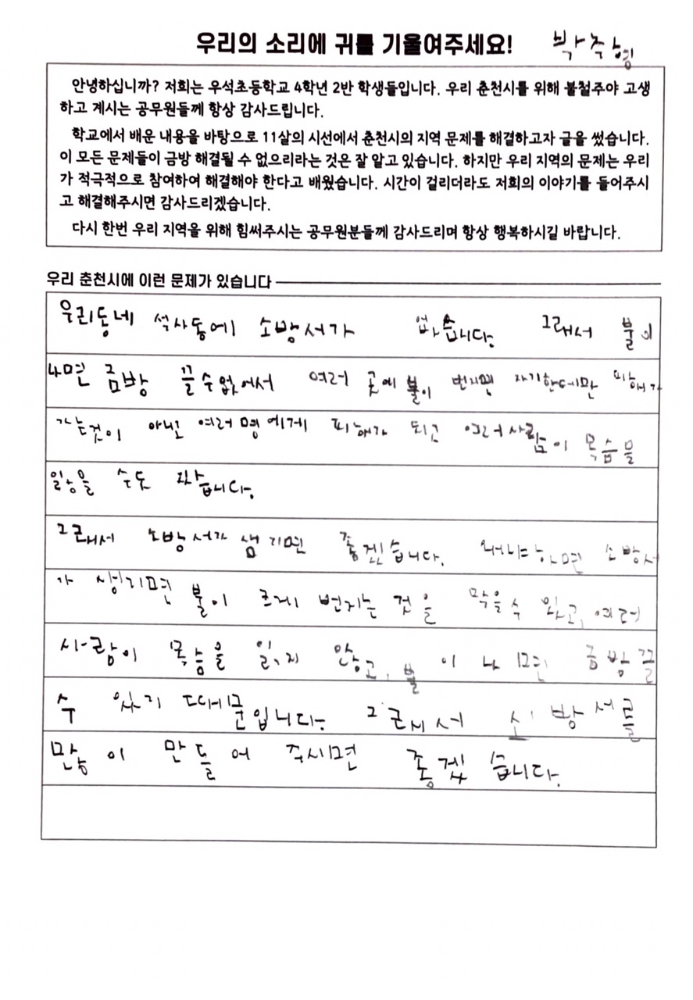 우리의 소리에 귀를 기울여주세요! 박주형
안녕하십니까? 저희는 우석초등학교 4학년 2반 학생들입니다. 우리 춘천시를 위해 불철주야 고생
하고 계시는 공무원들께 항상 감사드립니다.
학교에서 배운 내용을 바탕으로 11살의 시선에서 춘천시의 지역 문제를 해결하고자 글을 썼습니다.
이 모든 문제들이 금방 해결될 수 없으리라는 것은 잘 알고 있습니다. 하지만 우리 지역의 문제는 우리
가 적극적으로 참여하여 해결해야 한다고 배웠습니다. 시간이 걸리더라도 저희의 이야기를 들어주시
고 해결해주시면 감사드리겠습니다.
다시 한번 우리 지역을 위해 힘써주시는 공무원분들께 감사드리며 항상 행복하시길 바랍니다.
우리 춘천시에 이런 문제가 있습니다
우리동네 석사동에 소방서가 없습니다. 그래서 불이
나면 금방 끌수없어서 여러 곳에 불이 번지면 자기한테만 피해가
가는것이 아닌 여러명에게 피해가 되고 여러사람이 목숨을
잃을 수도 있습니다.
그래서 소방서가 생기면 좋겠습니다. 왜냐하면 소방서
가 생기면 불이 크게 번지는 것을 막을수 있고, 여러
사람이 목숨을 잃지 않고, 불이 나면 금방 끌
수 있기 때문입니다. 그래서 소방서를
많이 만들어 주시면 좋겠습니다.